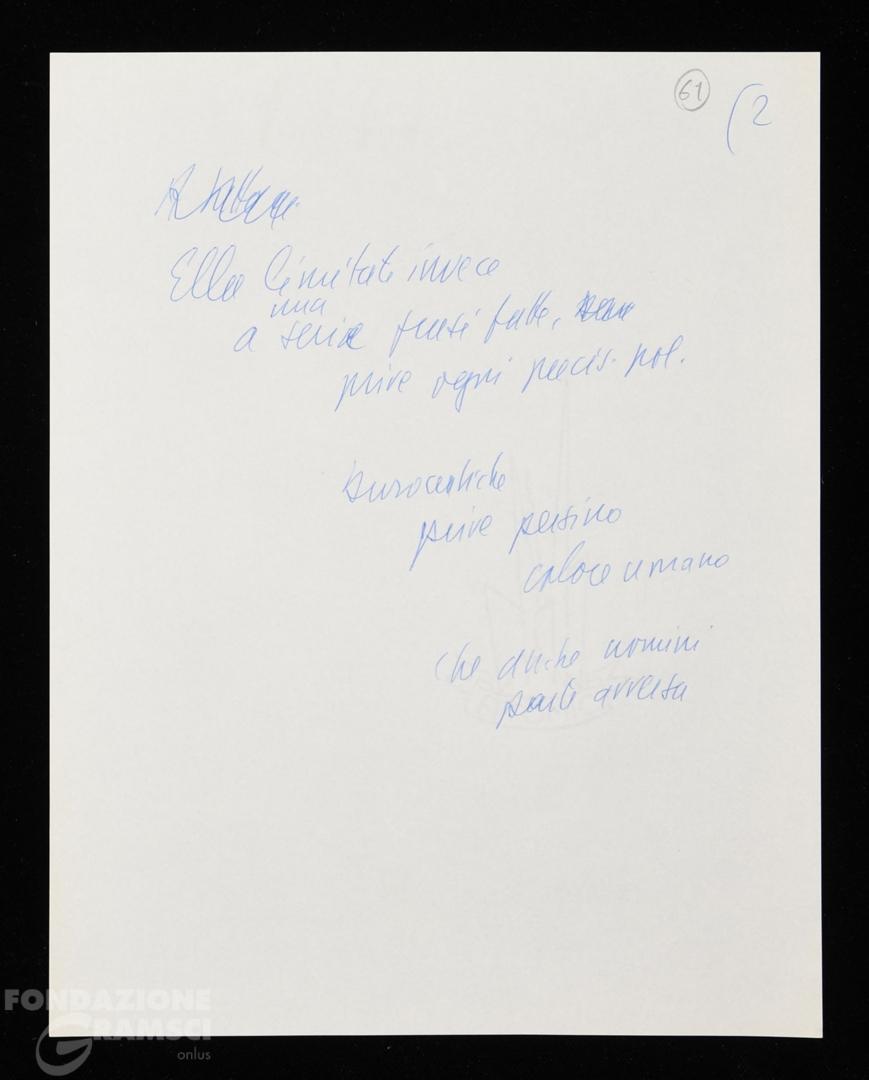 61
(2
Ella limitate invece
una
a serie frasi fatte,
prive ogni precis. pol.
burocratiche
prive persino
calore umano
che anche uomini
parte avversa
FONDAZIONE
GRAMSCI
onlus